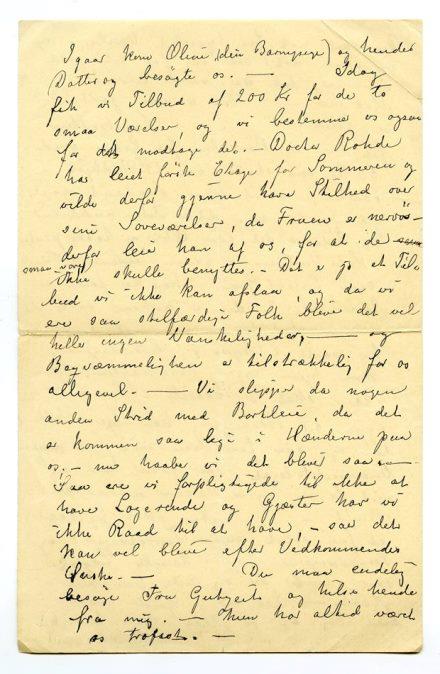 Igaar kom Oline (din Barnepige) og hendes
Datter og besøgte os. — Idag
fik vi Tilbud af 200 Kr for de to
smaa Værelser, og vi bestemmer os ogsaa
for at modtage det. — Doctor Rohde
har leiet første Etage for Sommeren og
vilde derfor gjerne have Stilhed over
sine Soveværelser, da Fruen er nervøs —
derfor leie han af os, for at de
smaa
ikke skulle benyttes. — Det er jo et Til-
bud vi ikke kan afslaa, og da vi
ere saa stilfærdige Folk bliver det vel
heller ingen Vanskeligheder, — og
Beqvæmmeligheden er tilstrækkelig for os
alligevel. — Vi slipper da nogen
anden Strid med Bortleie, da det
er kommen saa lige i Hænderne paa
os. — nu haabe vi det bliver saa. —
Saa ere vi forpligtigede til ikke at
have Logerende og Gjæster har vi
ikke Raad til at have, — saa det
kan vel blive efter Vedkommendes
Ønske. — Du maa endelig
besøge Fru og hilse hende
fra mig. — Hun har altid været
os trofast. —